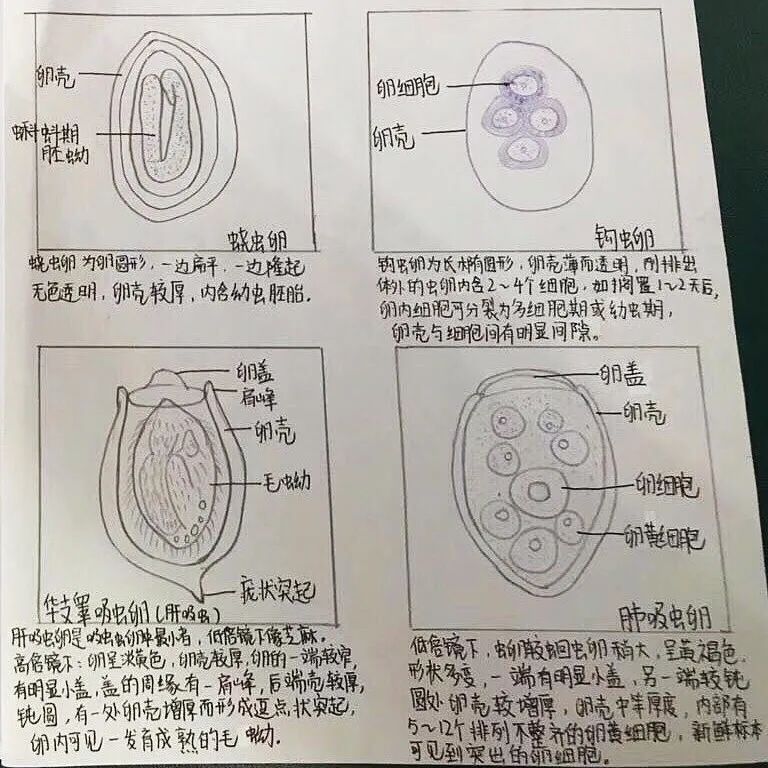 卵壳
蝌蚪期
胚蚴
蛲虫卵
蛲虫卵为卵圆形，一边扁平，一边隆起
无色透明，卵壳较厚，内含幼虫胚胎.
卵细胞
卵壳
钩虫卵
钩虫卵为长椭圆形，卵壳薄而透明，刚排出
体外的虫卵内含2~4个细胞，如搁置1~2天后，
卵内细胞可分裂为多细胞期或幼虫期，
卵壳与细胞间有明显间隙。
卵盖
肩峰
卵壳
毛蚴
疣状突起
华支睾吸虫卵(肝吸虫)
肝吸虫卵是吸虫卵中最小者，低倍镜下像芝麻.
高倍镜下:卵呈淡黄色，卵壳较厚，卵的一端较窄，
有明显小盖，盖的周缘有一肩峰，后端壳较厚，
钝圆，有一处卵壳增厚而形成逗点状突起，
卵内可见一发育成熟的毛蚴.
卵盖
卵壳
卵细胞
卵黄细胞
肺吸虫卵
低倍镜下，虫卵较蛔虫卵稍大，呈黄褐色.
形状多变，一端有明显小盖，另一端较钝
圆处卵壳较增厚，卵壳中等厚度，内部有
5~12个排列不整齐的卵黄细胞，新鲜标本
可见到突出的卵细胞。